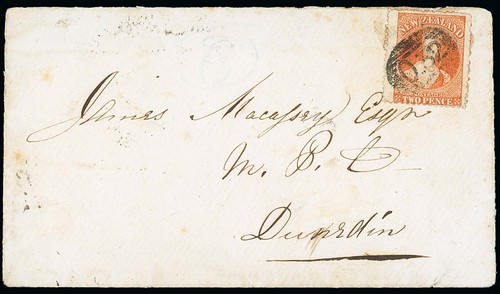 NEW ZEALAND
POSTAGE
TWO PENCE
James Macassey Esqr
M. P. C
Dunedin